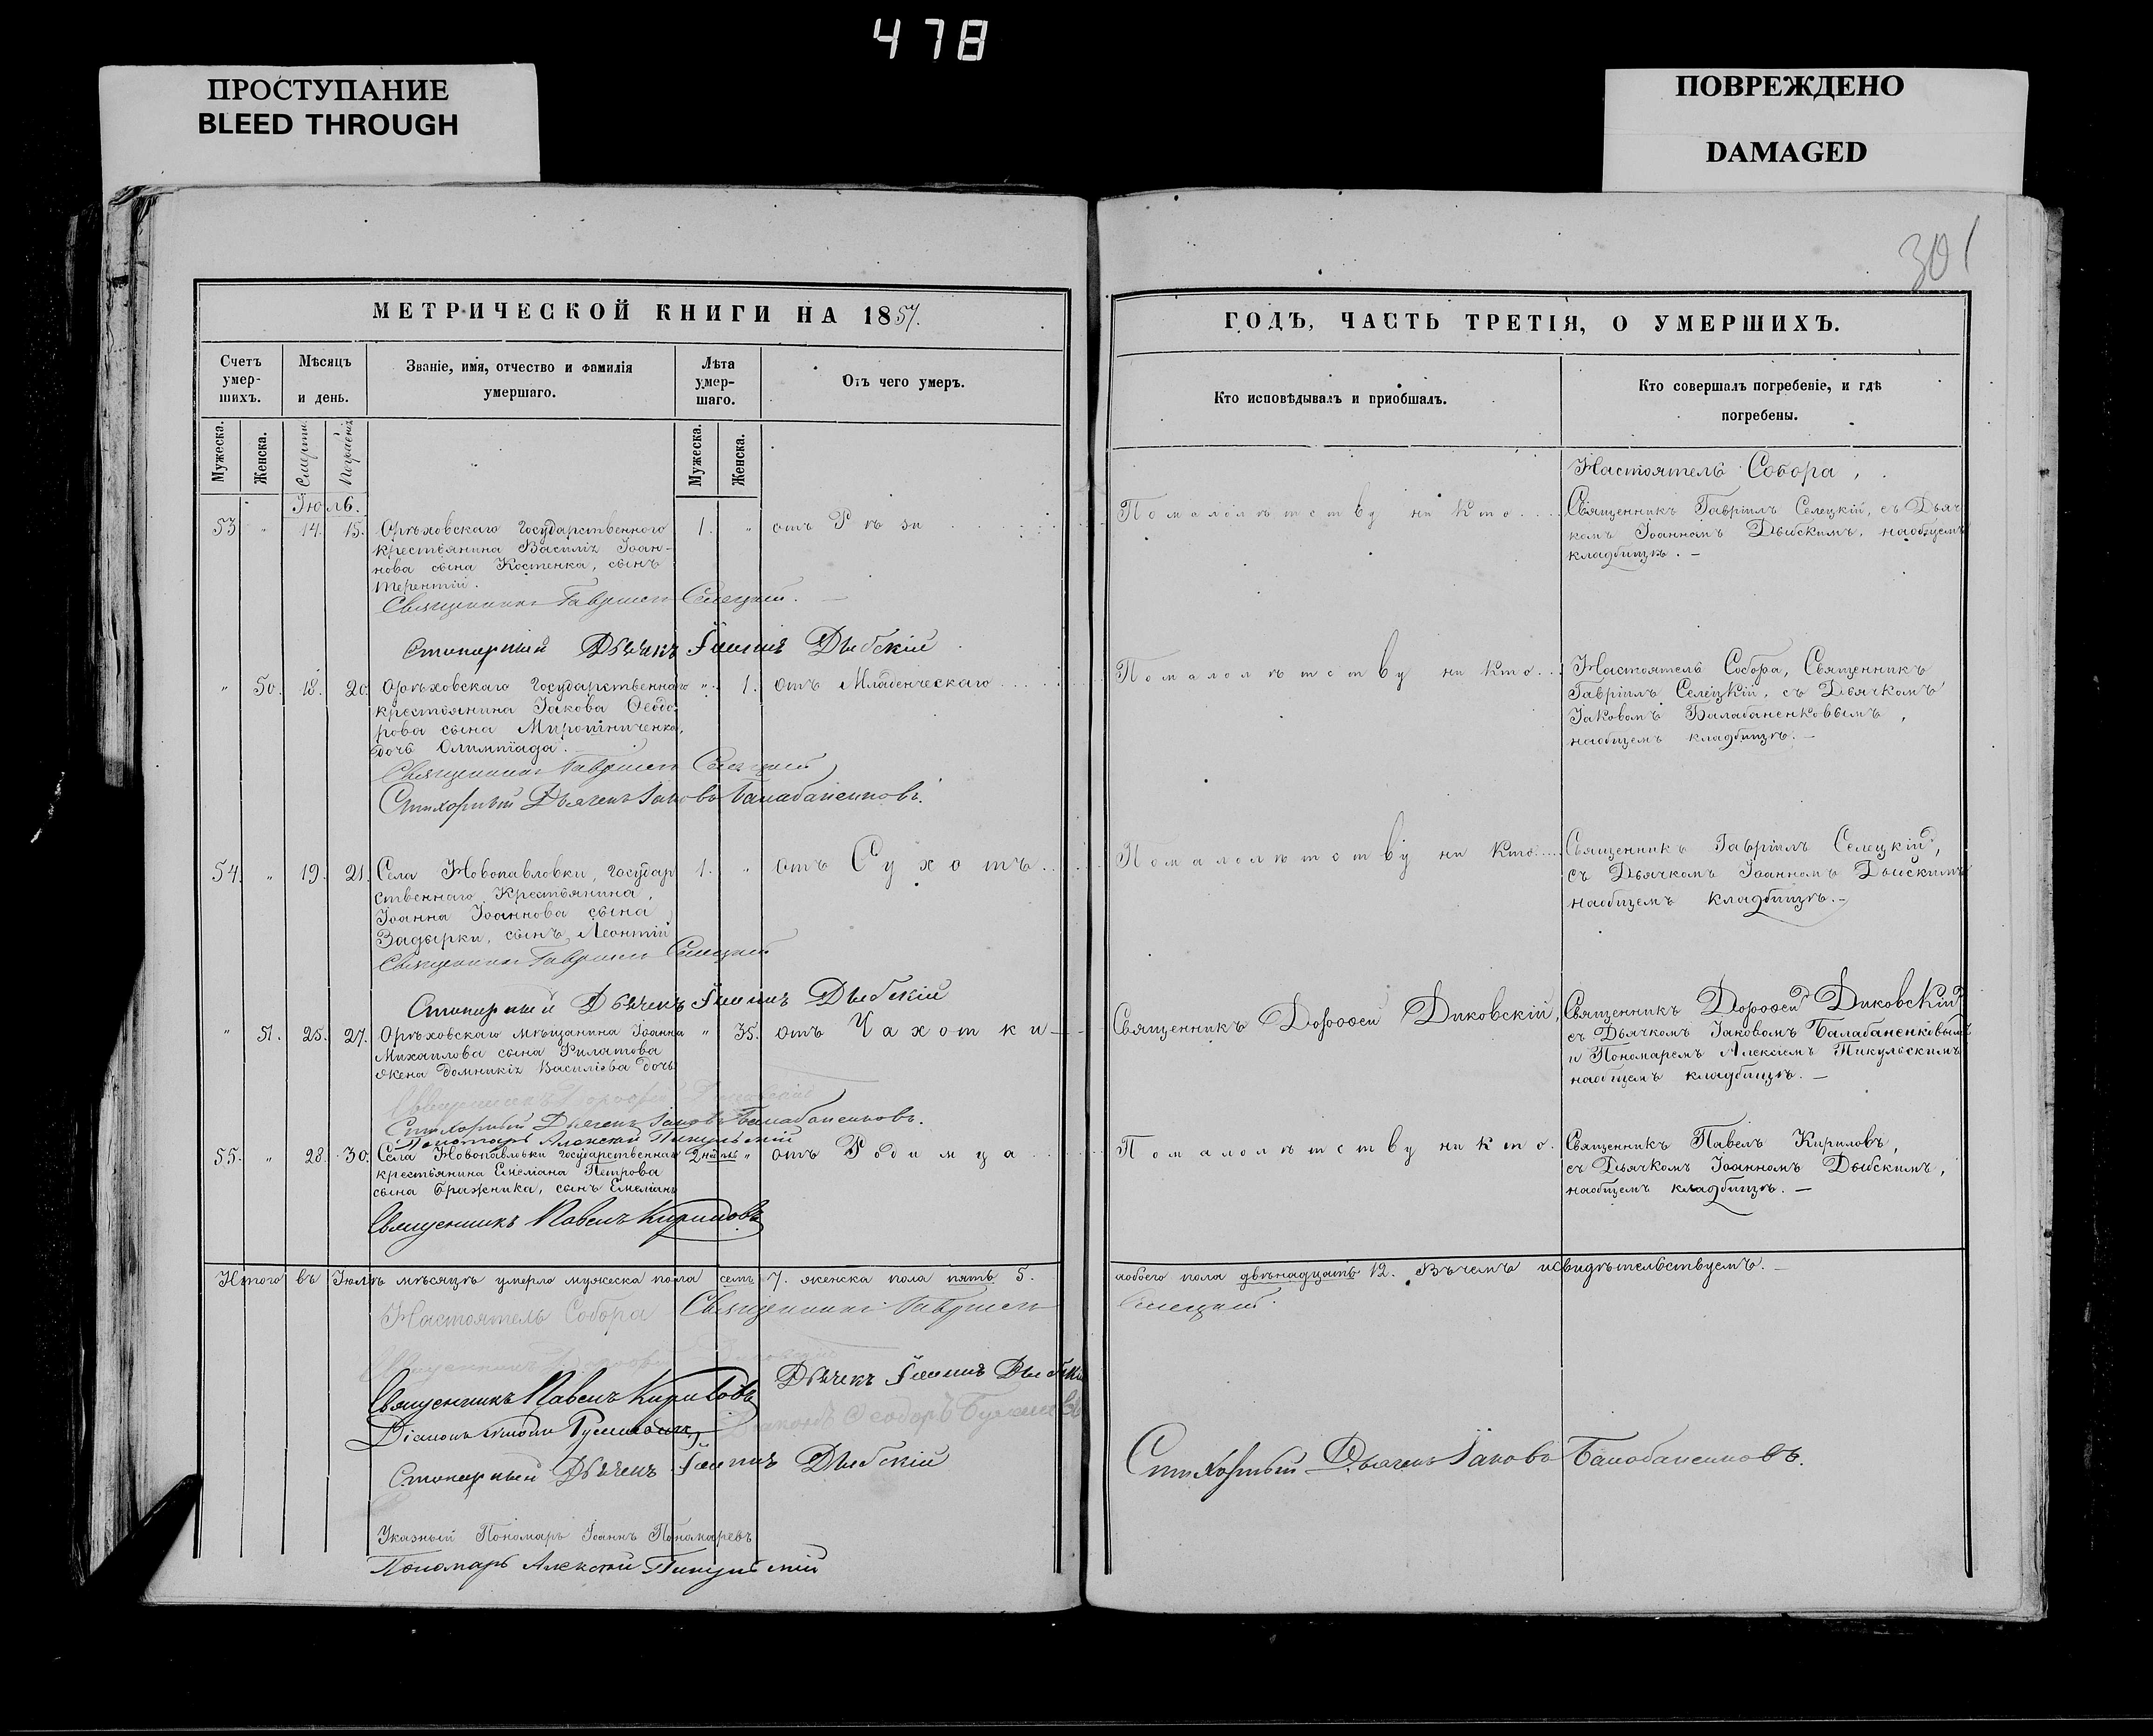 478
ПРОСТУПАНИЕ
BLEED THROUGH
ПОВРЕЖДЕНО
DAMAGED
301
МЕТРИЧЕСКОЙ КНИГИ НА 1857.
Счетъ умершихъ.
Мѣсяцъ и день.
Званіе, имя, отчество и фамилія умершаго.
Лѣта умершаго.
Отъ чего умеръ.
Мужеска.
Женска.
Смерти
Погребенія
Мужеска.
Женска.
Іюль.
53 " 14. 15. Орѣховскаго Государственного 1. " отъ Рѣзи
крестьянина Василія Іоан-
нова сына Костенка, сынъ
Терентій.
Священникъ Гавриилъ Селецкій.
Стихарный Дьячекъ Іоаннъ Дыбскій
" 50. 18. 20. Орѣховскаго Государственнаго " 1. отъ Младенческаго
крестьянина Іакова Ѳеодо-
рова сына Мирошниченка,
дочь Олимпіада.
Священникъ Гавриилъ Селецкій
Стихарный Дьячекъ Іаковъ Балабаненковъ.
54. " 19. 21. Села Новопавловки, Государ 1. " отъ Сухотъ
ственнаго Крестьянина,
Іоанна Іоаннова сына
Задырки, сынъ Леонтій
Священникъ Гавриилъ Селецкій
Стихарный Дьячекъ Іоаннъ Дыбскій
" 51. 25. 27. Орѣховскаго мѣщанина Іоанна " 35. отъ Чахотки
Михаилова сына Филатова
жена Домникія Василіева дочь
Священникъ Дороѳей Диковскій
Стихарный Дьячекъ Іаковъ Балабаненковъ.
Пономарь Алексѣй Пикульскій
55. " 28. 30. Села Новопавловки государственнаго "отъ Родимца
крестьянина Емеліана Петрова
сына Бражника, сынъ Емеліанъ
Священникъ Павелъ Кириловъ
Итого въ Іюлѣ мѣсяцѣ умерло мужеска пола семь 7. женска пола пять 5.
Настоятель Собора Священникъ Гавриилъ
Священникъ Дороѳей Диковскій
Дьячекъ Іоаннъ Дыбскій
Священникъ Павелъ Кириловъ
Діаконъ
Діаконъ Ѳеодоръ
Стихарный Дьячекъ Іоаннъ Дыбскій
Указный Пономарь Іоаннъ Пономаревъ
Пономарь Алексѣй Пикульскій
ГОДЪ, ЧАСТЬ ТРЕТІЯ, О УМЕРШИХЪ.
Кто исповѣдывалъ и пріобщалъ.
Кто совершалъ погребеніе, и гдѣ погребены.
Настоятель Собора,
По малолѣтству ни кто Священникъ Гавріилъ Селецкій, съ Дьяч
комъ Іоанномъ Дыбскимъ, наобщемъ
кладбищѣ. —
По малолѣтству ни кто Настоятель Собора, Священникъ
Гавріилъ Селецкій, съ Дьячкомъ
Іаковомъ Балабаненковымъ,
наобщемъ кладбищѣ. —
По малолѣтству ни кто Священникъ Гавріилъ Селецкій,
съ Дьячкомъ Іоанномъ Дыбскимъ
наобщемъ кладбищѣ. —
Священникъ Дороѳей Диковскій, Священникъ Дороѳей Диковскій
съ Дьячкомъ Іаковомъ Балабаненковымъ
и Пономаремъ Алексіемъ Пикульскимъ
наобщемъ кладбищѣ. —
По малолѣтству ни кто. Священникъ Павелъ Кириловъ,
съ Дьячкомъ Іоанномъ Дыбскимъ,
наобщемъ кладбищѣ. —
аобоего пола двѣнадцать 12. Въ чемъ исвидѣтельствуемъ. —
Селецкій.
Стихарный Дьячекъ Іаковъ Балабаненковъ.